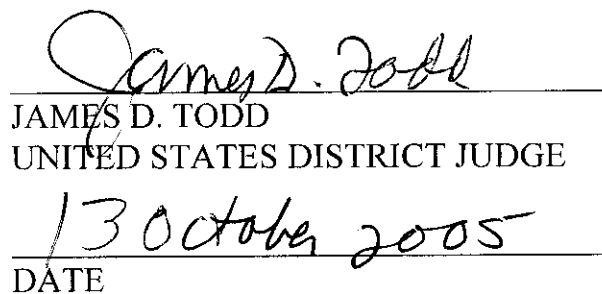 James D. Todd
JAMES D. TODD
UNITED STATES DISTRICT JUDGE
13 October 2005
DATE